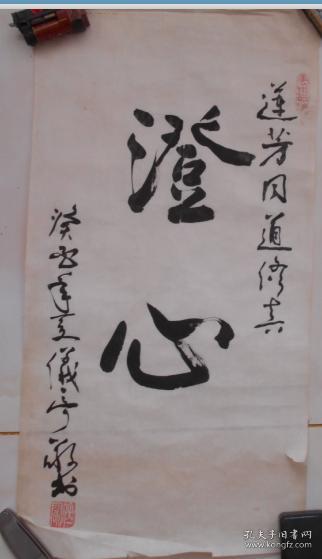 蓮芳同道修真
澄心
癸酉年夏儀亭敬書
孔夫子旧书网
kongfz.com